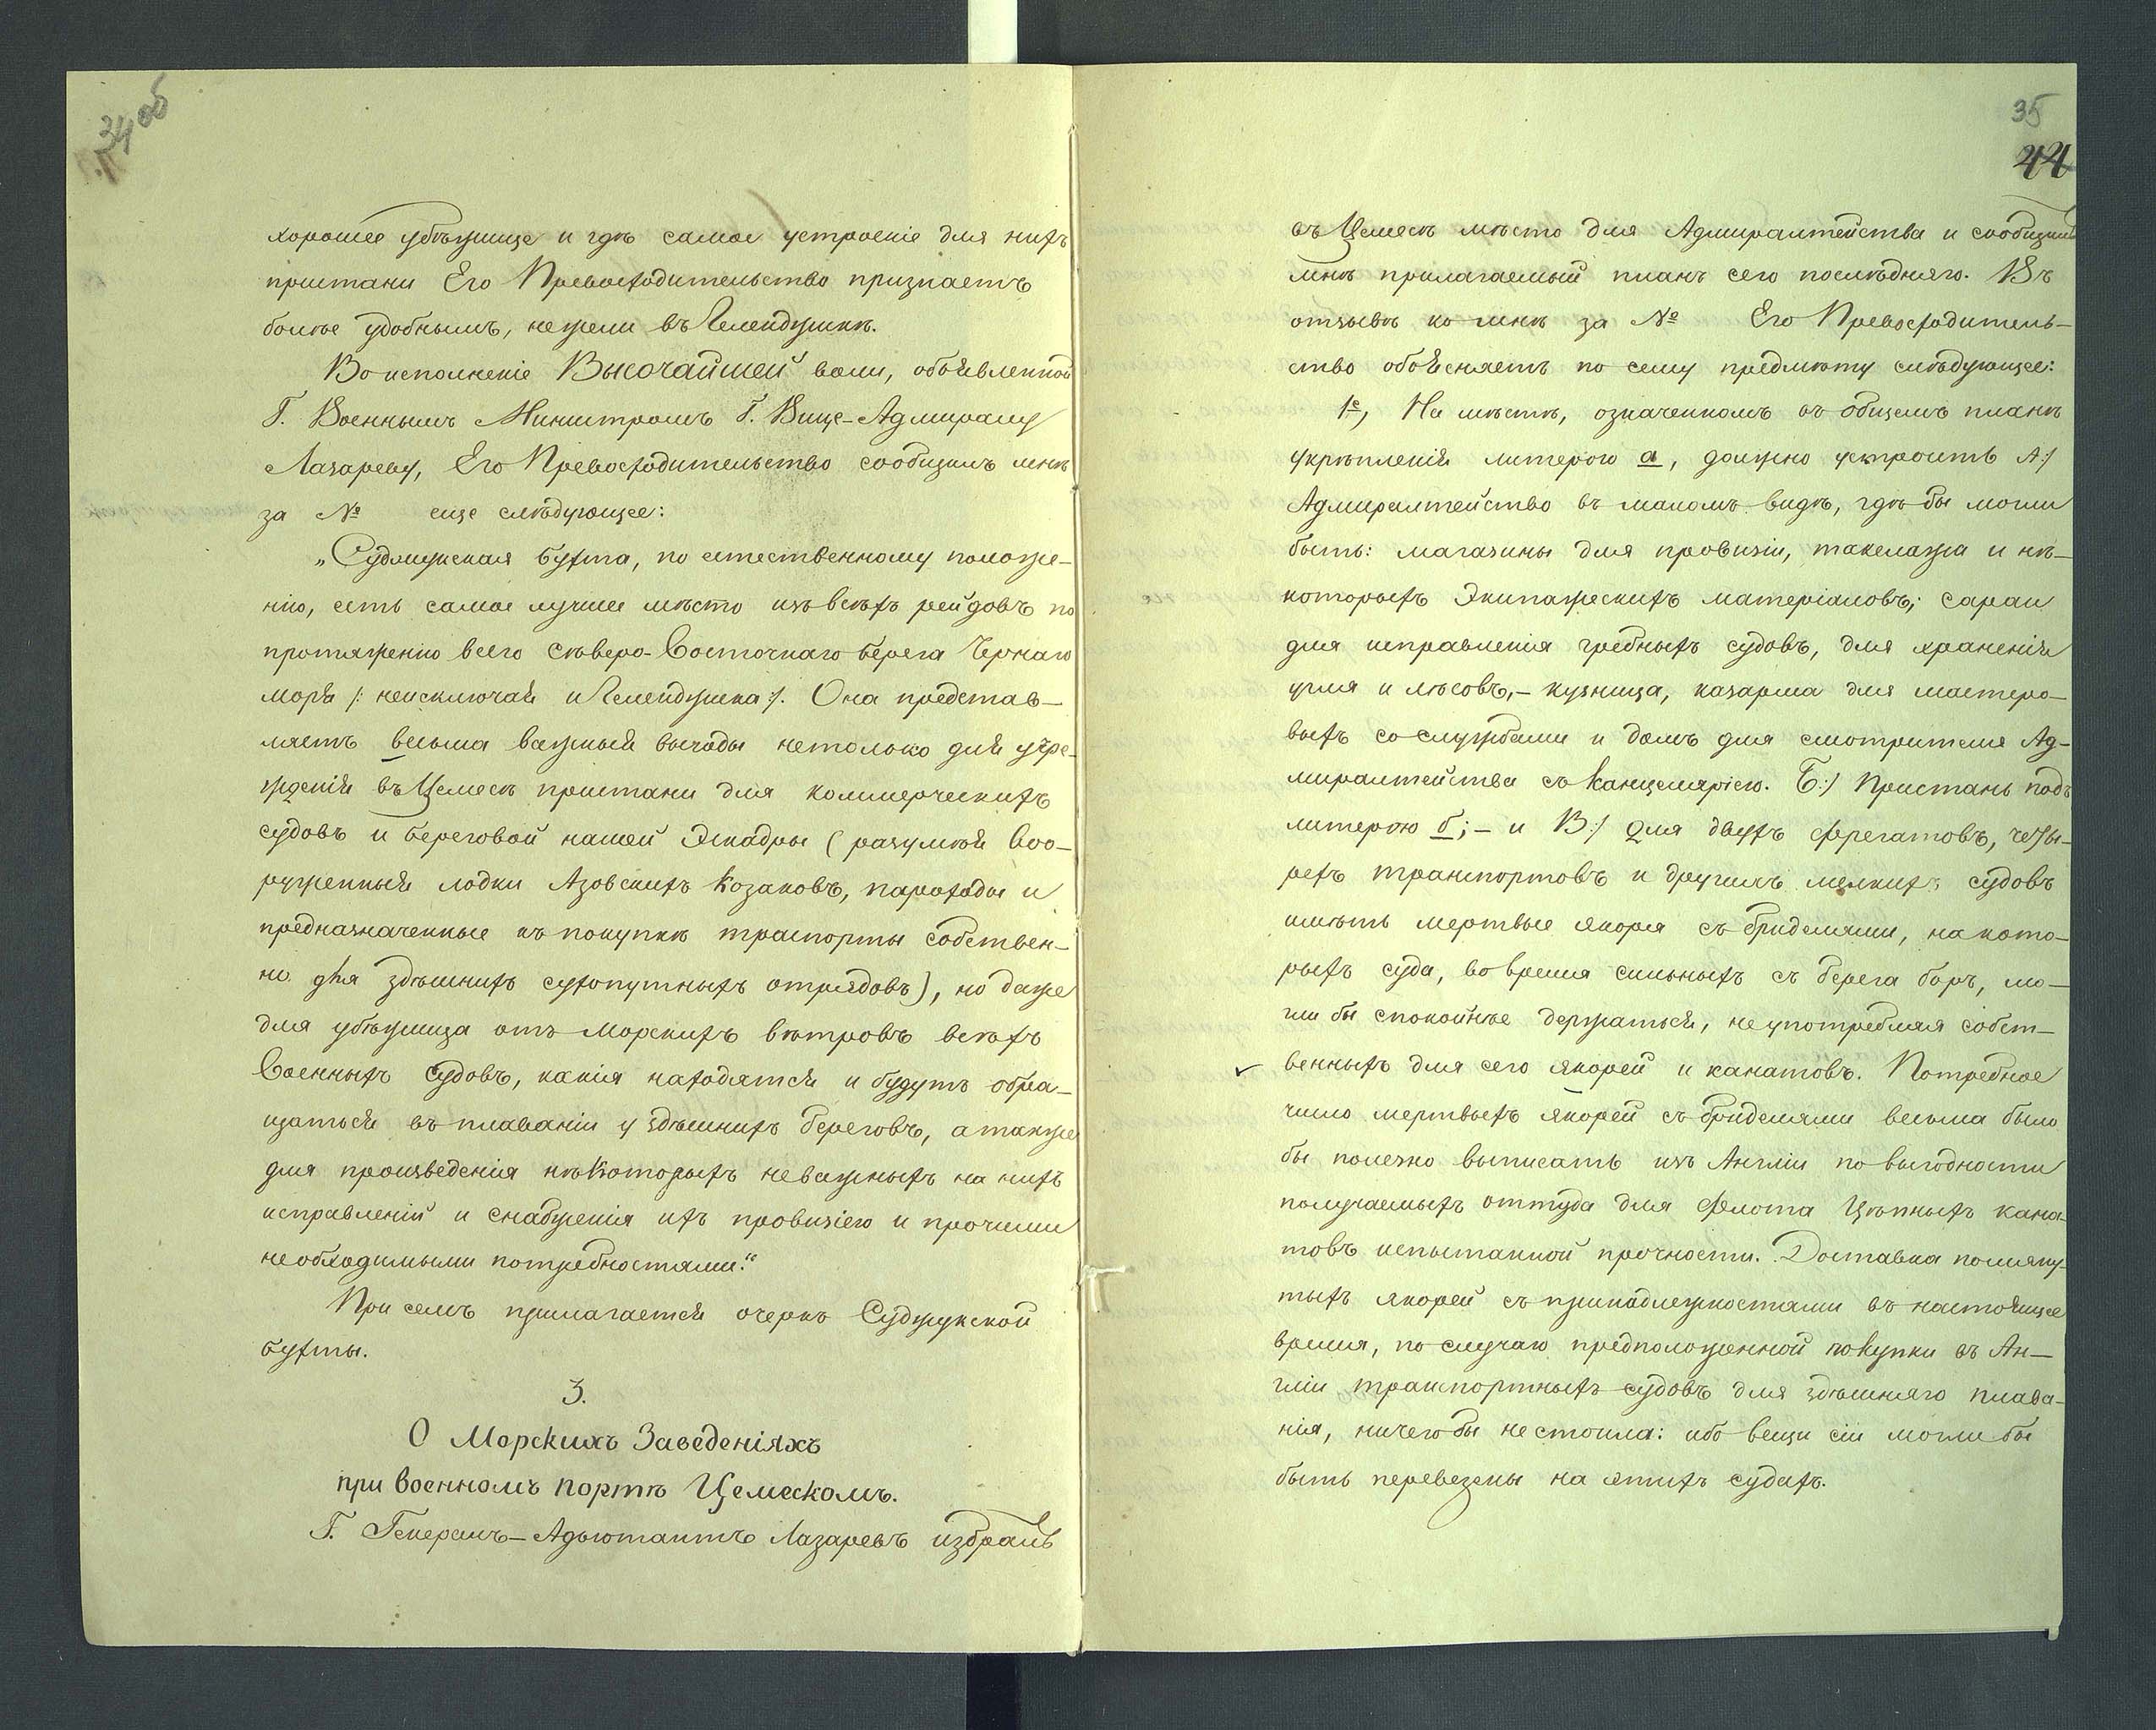 34 об
хорошее убѣжище и гдѣ самое устроенiе для нихъ
пристани Его Превосходительство признаетъ
болѣе удобнымъ, нежели въ Геленджикѣ.
Во исполненiе Высочайшей воли, объявленной
Г. Военнымъ Министромъ Г. Вице-Адмиралу
Лазареву, Его Превосходительство сообщилъ мнѣ
за № еще слѣдующее:
„Суджукская бухта, по естественному положе-
нiю, есть самое лучшее мѣсто изъ всѣхъ рейдовъ по
протяженiю всего Сѣверо-Восточнаго берега Чернаго
моря /: неисключая и Геленджика :/. Она представ-
ляетъ весьма важныя выгоды нетолько для учре-
жденiя въ Цемесѣ пристани для коммерческихъ
судовъ и береговой нашей Эскадры (разумѣя воо-
руженныя лодки Азовскихъ Козаковъ, пароходы и
предназначенные къ покупкѣ траспорты собствен-
но для здѣшнихъ сухопутныхъ отрядовъ), но даже
для убѣжища отъ морскихъ вѣтровъ всѣхъ
Военныхъ Судовъ, какiя находятся и будутъ обра-
щаться въ плаванiи у здѣшнихъ береговъ, а также
для произведенiя нѣкоторыхъ неважныхъ на нихъ
исправленiй и снабженiя ихъ провизiею и прочими
необходимыми потребностями.“
При семъ прилагается очеркъ Суджукской
бухты.
3.
О Морскихъ Заведенiяхъ
при военномъ портѣ Цемескомъ.
Г. Генералъ-Адъютантъ Лазаревъ избралъ
35
44
въ Цемесѣ мѣсто для Адмиралтейства и сообщилъ
мнѣ прилагаемый планъ сего послѣдняго. Въ
отзывѣ ко мнѣ за № Его Превосходитель-
ство объясняетъ по сему предмѣту слѣдующее:
1е, На мѣстѣ, означенномъ въ общемъ планѣ
укрѣпленiя литерою а, должно устроить А:/
Адмиралтейство въ маломъ видѣ, гдѣ бы могли
быть: магазины для провизiи, такелажа и нѣ-
которыхъ Экипажескихъ матерiаловъ; сараи
для исправленiя гребныхъ судовъ, для храненiя
угля и лѣсовъ,- кузница, казарма для мастеро-
выхъ со службами и домъ для смотрителя Ад-
миралтейства съ Канцелярiею. Б:/ Пристань подъ
литерою б; - и В:/ Для двухъ фрегатовъ, четы-
рехъ транспортовъ и другихъ мелкихъ судовъ
имѣть мертвые якоря съ бриделями, на кото-
рыхъ суда, во время сильныхъ съ берега боръ, мо-
гли бы спокойнѣе держаться, не употребляя собст-
венныхъ для сего якорей и канатовъ. Потребное
число мертвыхъ якорей съ бриделями весьма было
бы полезно выписать изъ Англiи по выгодности
получаемыхъ оттуда для флота Цѣпныхъ кана-
товъ испытанной прочности. Доставка помяну-
тыхъ якорей съ принадлежностями въ настоящее
время, по случаю предположенной покупки въ Ан-
глiи транспортныхъ судовъ для здѣшняго плава-
нiя, ничего бы не стоила: ибо вещи сiи могли бы
быть перевезены на этихъ судахъ.